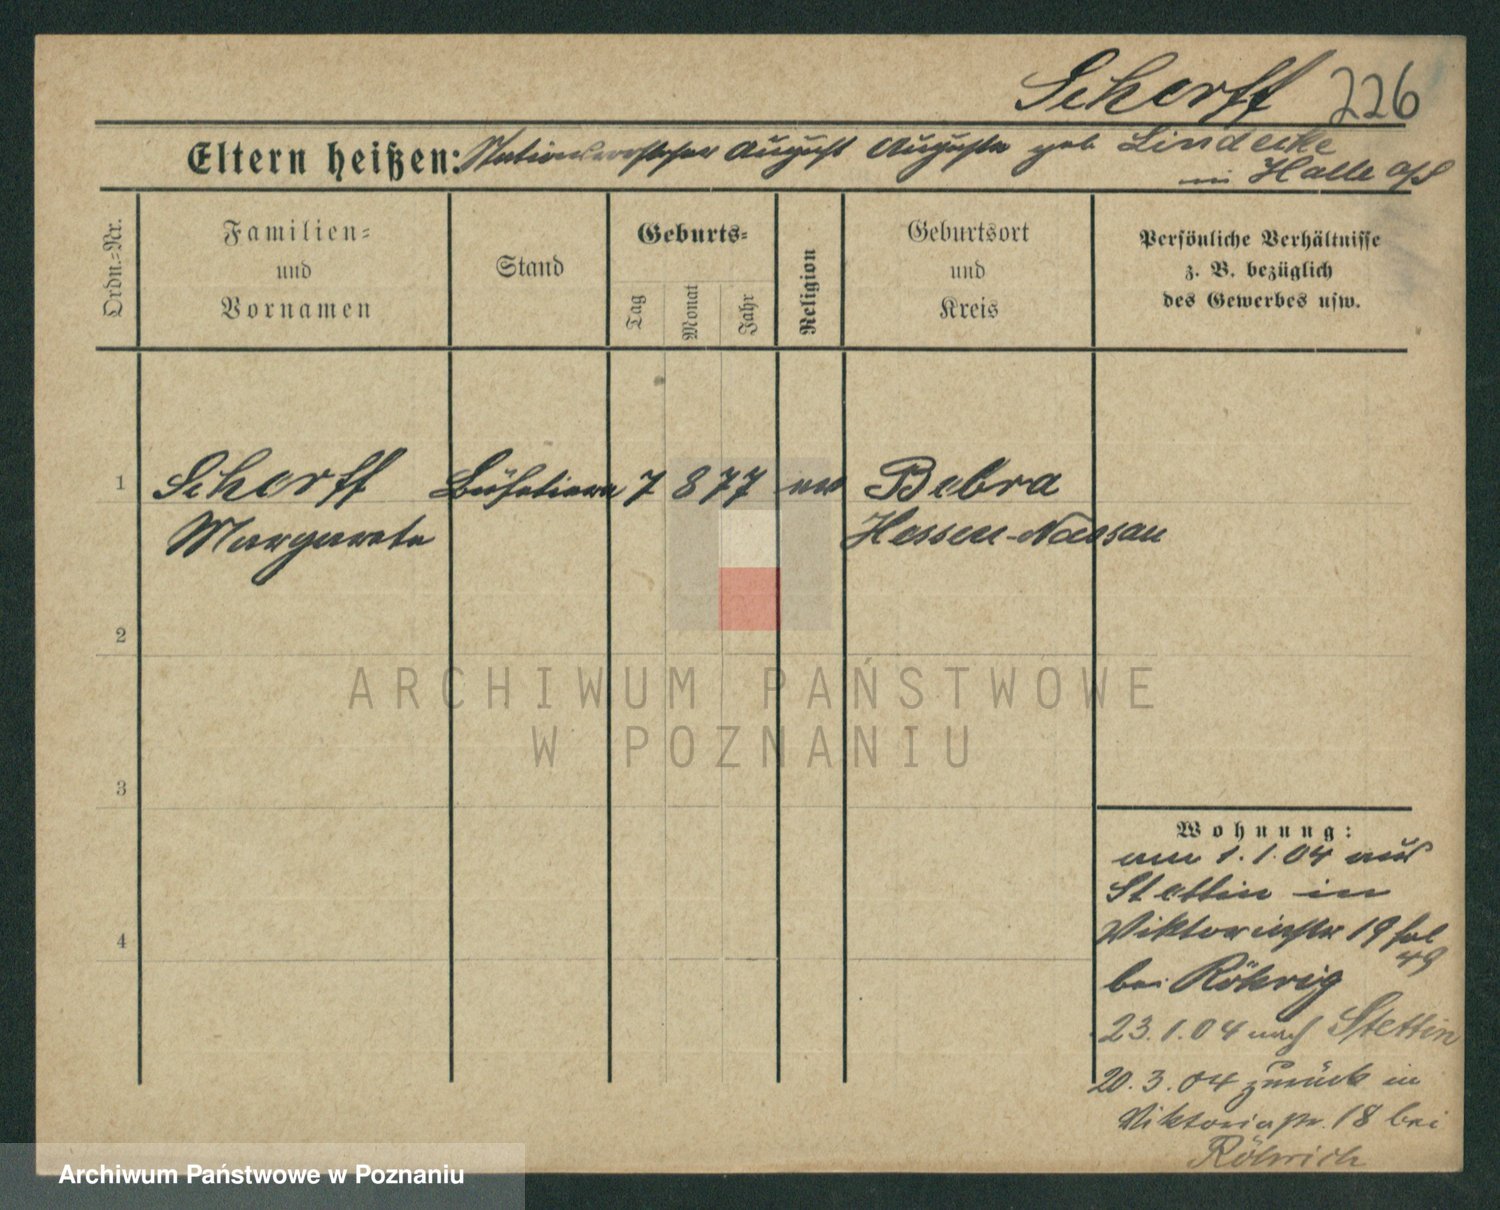 Scherff 226
Eltern heißen: Stationsvorsteher August Auguste geb Lindecke
in Halle a/S
Ordn.-Nr.
Familien-
und
Vornamen
Stand
Geburts-
Tag
Monat
Jahr
Religion
Geburtsort
und
Kreis
Persönliche Verhältnisse
z. B. bezüglich
des Gewerbes usw.
1 Scherff Büfetiere 7 8 77 ev Bebra
Margarete Hessen-Nassau
2
3
4
Wohnung:
am 1.1.04 aus
Stettin in
Viktoriastr 19 fol
49
bei Röhrig
23.1.04 nach Stettin
20.3.04 zurück in
Viktoriastr. 18 bei
Röhrich
ARCHIWUM PAŃSTWOWE
W POZNANIU
Archiwum Państwowe w Poznaniu